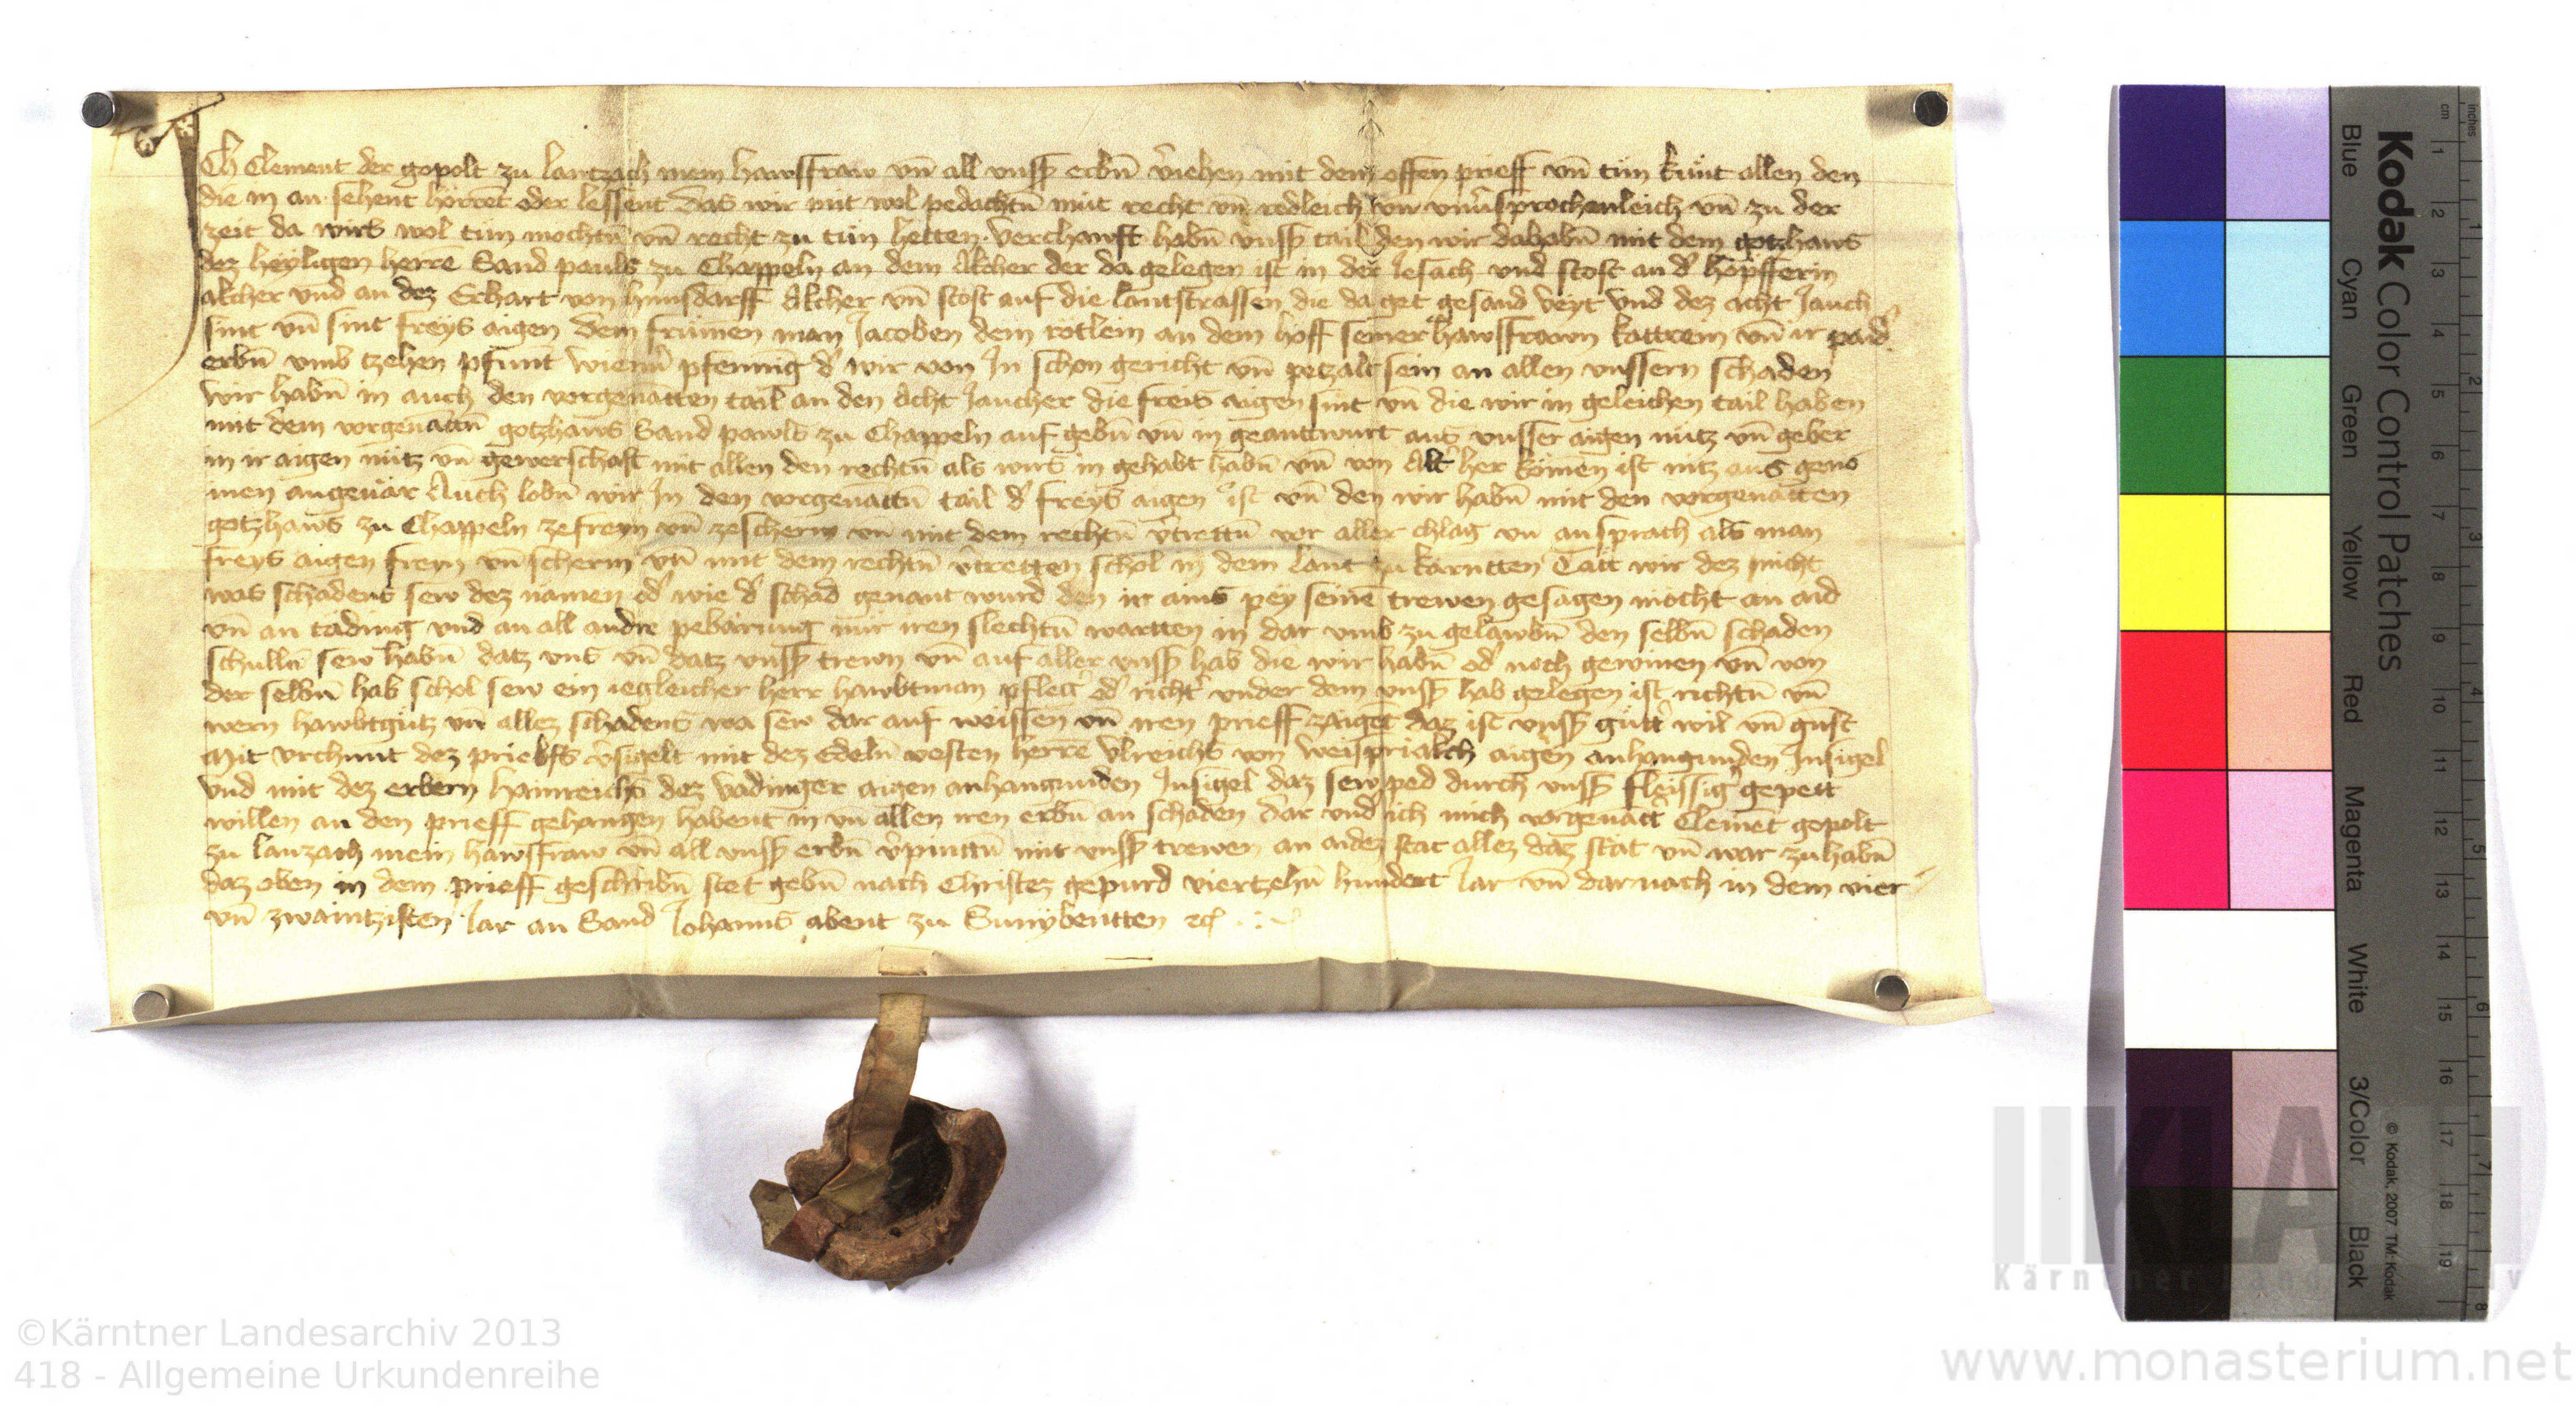 Ich Clement der gopolt zu lantzach mein hawsfraw vñ all vnsß erbñ v̓iehen mit dem offen prieff vñ tün kunt allen den
die in an sehent hörrēt oder lessent das wir mit wol pedachtn̄ müt recht vñ redleich vñ vnu̓sprochenleich vñ zu der
zeit da wirs wol tün mochtn̄ vñ recht zu tün hetten verchauft habn̄ vnsß tail den wir da habn̄ mit dem gotzhaws
dez heyligen herrē Sand pauls zu Chappeln an dem Akcher der da gelegen ist in der Jesach vnd stost an d̓ höpfferin
akcher vnd an dez Erhart von hunsdarff Akcher vñ stost auf die lantstrassen die da get gesand veyt vnd dez acht Jauch
sint vñ sint freys aigen dem frumen man Jacoben dem rötlein an dem hoff seiner hawsfrawn kattrein vñ ir paid̓
erbn̄ vmb tzehen pfunt wienn̓ pfennig d̓ wir von In schon gericht vñ petzalt sein an allen vnssern schaden
wir habn̄ in auch den vorgenātten tail an den Acht Jaucher die freis aigen sint vñ die wir in geleichen tail haben
mit dem vorgenāttn̄ gotzhaws Sand pawls zu Chappeln auf gebn̄ vñ in geantwurt aus vnsser aigen nütz vñ geber
in ir aigen nütz vñ gewerschaft mit allen den rechtn̄ als wirs in gehabt habn̄ vñ von Alt̓ her kömen ist nitz aus geno
men angeuär Auch lobn̄ wir In den vorgenattn̄ tail d̓ freys aigen ist vñ den wir habn̄ mit den vorgenātten
gotzhaws zu Chappeln zefreyn vñ zescherm vñ mit dem rechtn̄ v̓trettn̄ vor aller chlag vñ ansprach als man
freys aigen freyn vñ scherm vñ mit dem rechtn̄ v̓tretten schol in dem lant zu karntten Tätt wir dez nicht
was schadens sew dez namen od̓ wie d̓ schad genant wurd den ir ains pey seinē trewen gesagen mocht an aid
vñ an täding vnd an all andre pebärung nur iren slechtn̄ wartten in dar vmb zu gelawbn̄ den selbn̄ schaden
schullñ sew habn̄ datz vns vñ datz vnsß trewn vñ auf aller vnsß hab die wir habn̄ od̓ noch gewinen vñ von
der selbn̄ hab schol sew ein iegleicher herr hawbtman pfleg̓ od̓ richt̓ vnder dem vnsß hab gelegen ist richtn̄ vñ
wern hawbtgütz vñ allez schadens wa sew dar auf weissen vñ iren prieff zaigēt daz ist vnsß gütt̓ wil vñ gunst
Mit vrchunt dez priefs v̓sigelt mit dez Edeln vesten herrē Vlreichs von weispriakch aigen anhangunden Insigel
vnd mit dez erbern hainreichs dez vadinger aigen anhangunden Insigel daz sew ped durch vnsß fleissig̓ gepett
willen an den prieff gehangen habent in vñ allen iren erbn̄ an schaden dar vnd̓ ich mich vorgenātt̓ Clemēt gopolt
zu lanzach mein hawsfraw vñ all vnsß erbn̄ v̓pinttn̄ mit vnsß trewen an aides stat allez daz stät vñ war zu habn̄
daz oben in dem prieff geschribn̄ stet gebn̄ nach Christez gepurd viertzehn̄ hundert Jar vñ darnach in dem vier
vñ zwaintzisten Jar an Sand Johanns abent zu Sunybentten
©Kärntner Landesarchiv 2013
418 - Allgemeine Urkundenreihe
www.monasterium.net
Kodak Color Control Patches
Blue Cyan Green Yellow Red Magenta White 3/Color Black
© Kodak, 2007 TM: Kodak
cm 1 2 3 4 5 6 7 8 9 10 11 12 13 14 15 16 17 18 19
inches 1 2 3 4 5 6 7 8